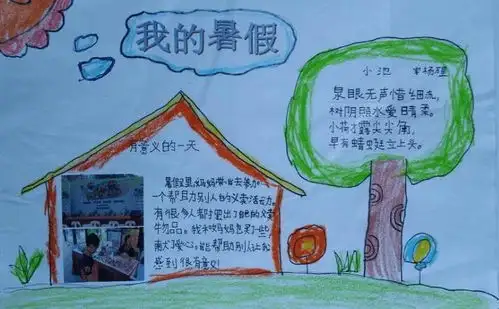 我的暑假
小池
杨
泉眼无声惜细流，
树阴照水爱晴柔。
小荷才露尖尖角，
早有蜻蜓立上头。
有意义的一天
暑假里，妈妈带我去参加
一个帮助别人的义卖活动。
有很多人都拿出了自己的义卖
物品。我和妈妈也买了些，
献爱心，能帮助别人让我
感到很有意义！